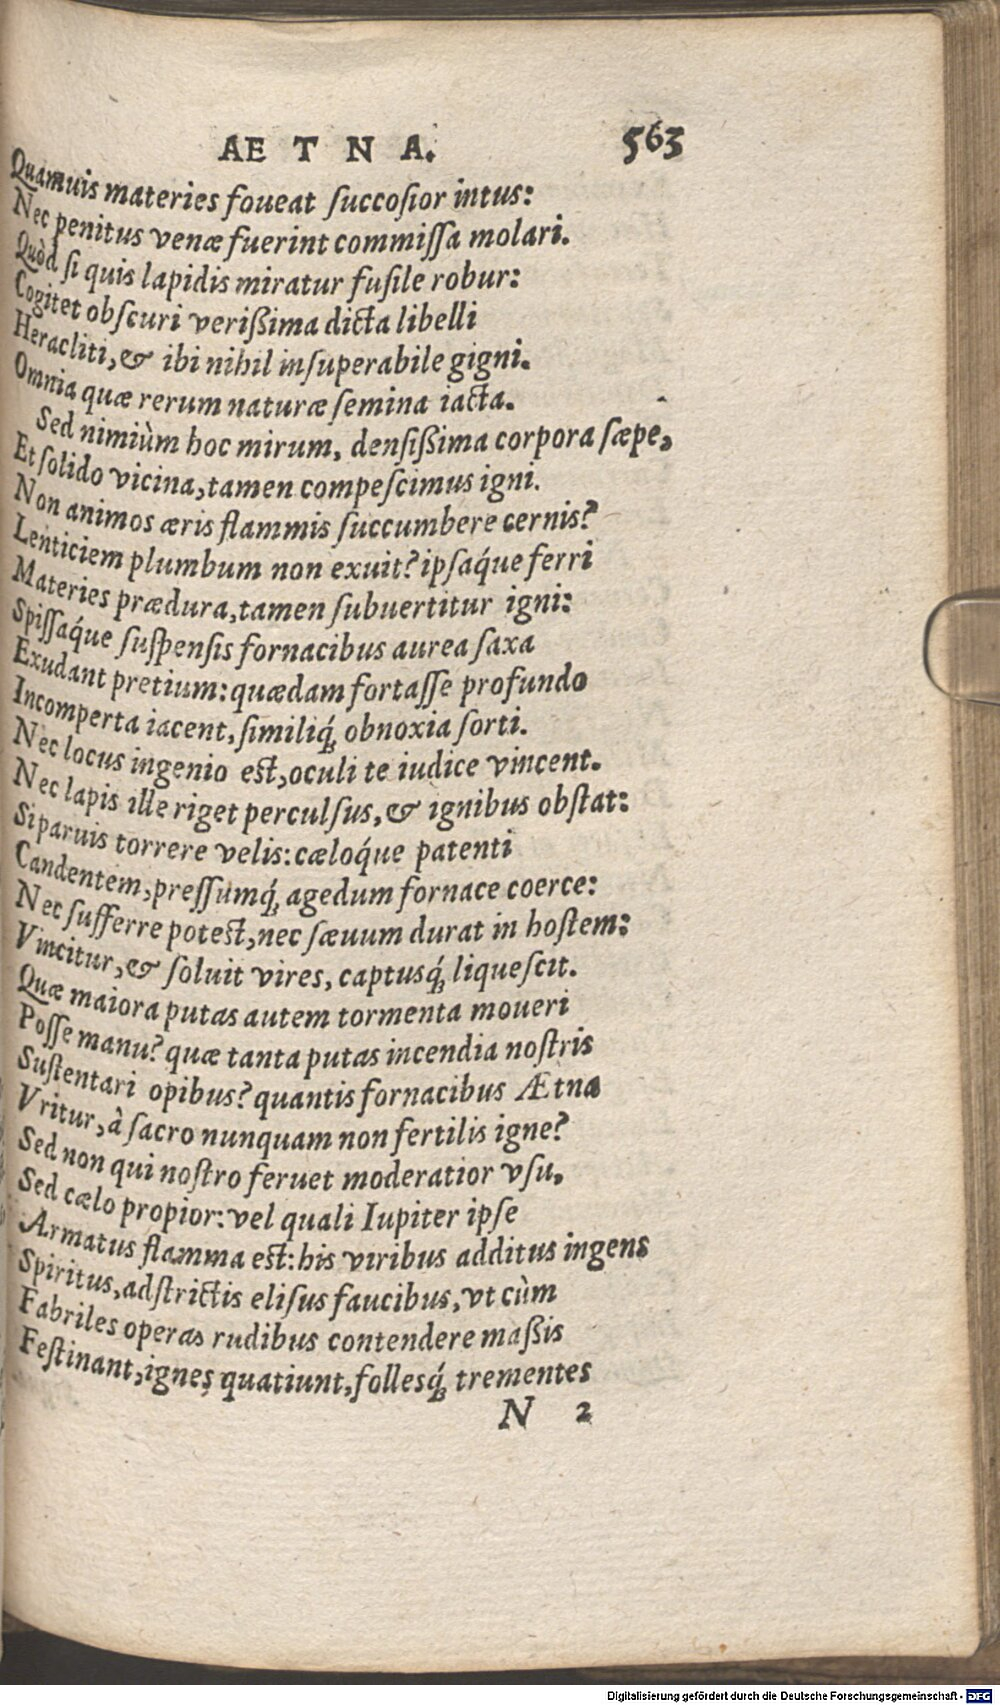 AETNA. 563
Quamuis materies foueat ſuccoſior intus:
Nec penitus venæ fuerint commiſſa molari.
Quòd ſi quis lapidis miratur fuſile robur:
Cogitet obſcuri verißima dicta libelli
Heracliti, & ibi nihil inſuperabile gigni.
Omnia quæ rerum naturæ ſemina iacta.
Sed nimiùm hoc mirum, denſißima corpora ſæpe,
Et ſolido vicina, tamen compeſcimus igni.
Non animos æris flammis ſuccumbere cernis?
Lenticiem plumbum non exuit? ipſaq́ue ferri
Materies prædura, tamen ſubuertitur igni:
Spiſſaq́ue ſuſpenſis fornacibus aurea ſaxa
Exudant pretium: quædam fortaſſe profundo
Incomperta iacent, ſimiliq́; obnoxia ſorti.
Nec locus ingenio est, oculi te iudice vincent.
Nec lapis ille riget perculſus, & ignibus obſtat:
Si paruis torrere velis: cæloq́ue patenti
Candentem, preſſumq́; agedum fornace coerce:
Nec ſufferre potest, nec ſæuum durat in hoſtem:
Vincitur, & ſoluit vires, captusq́; liqueſcit.
Quæ maiora putas autem tormenta moueri
Poſſe manu? quæ tanta putas incendia noſtris
Suſtentari opibus? quantis fornacibus Ætna
Vritur, à ſacro nunquam non fertilis igne?
Sed non qui noſtro feruet moderatior vſu,
Sed cælo propior: vel quali Iupiter ipſe
Armatus flamma est: his viribus additus ingens
Spiritus, adſtrictis eliſus faucibus, vt cùm
Fabriles operas rudibus contendere maßis
Feſtinant, ignes quatiunt, follesq́; trementes
N 2
Digitalisierung gefördert durch die Deutsche Forschungsgemeinschaft - DFG